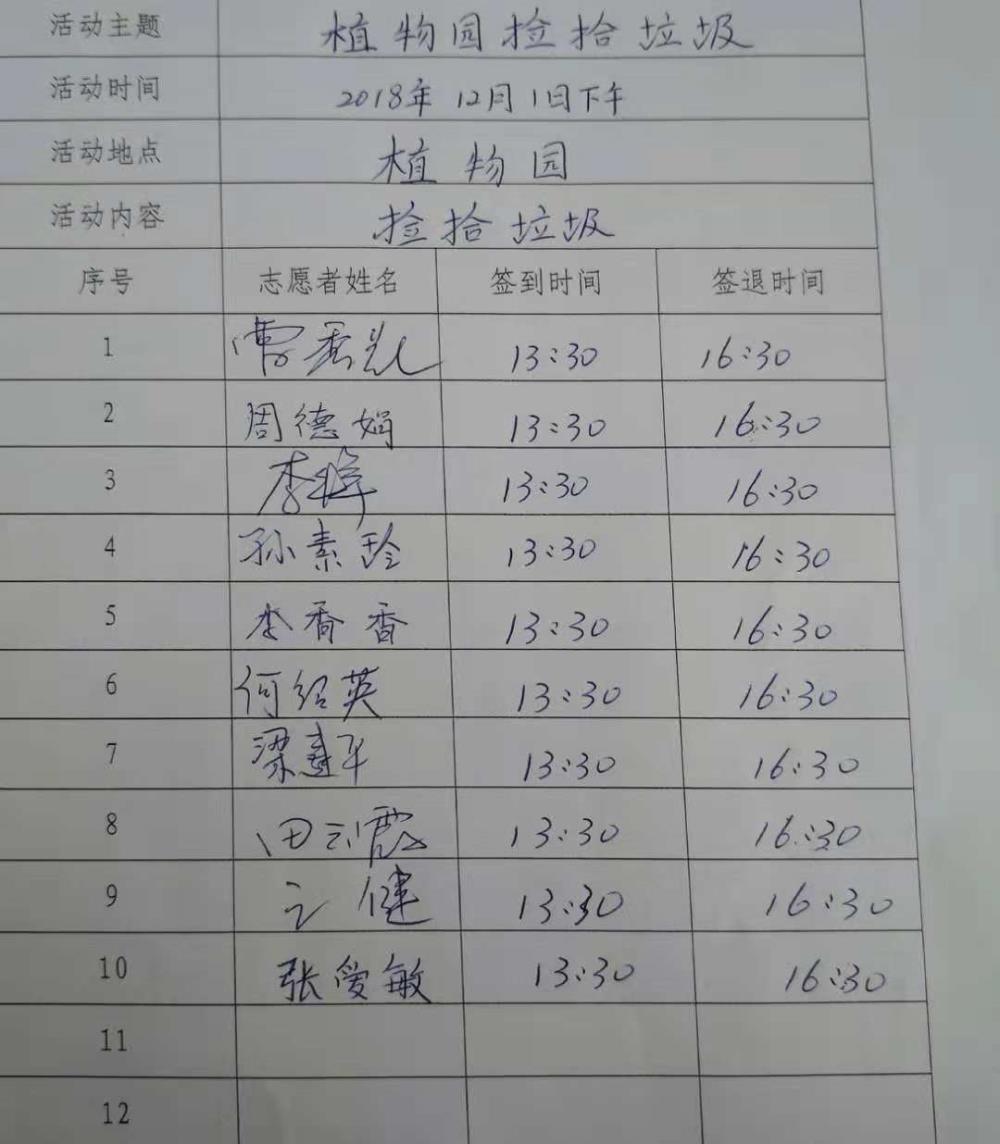 活动主题 植物园捡拾垃圾
活动时间 2018年12月1日下午
活动地点 植物园
活动内容 捡拾垃圾
序号 志愿者姓名 签到时间 签退时间
1 曹 13:30 16:30
2 周德娟 13:30 16:30
3 李 13:30 16:30
4 孙素玲 13:30 16:30
5 李香香 13:30 16:30
6 何绍英 13:30 16:30
7 梁 平 13:30 16:30
8 田云霞 13:30 16:30
9 健 13:30 16:30
10 张爱敏 13:30 16:30
11
12